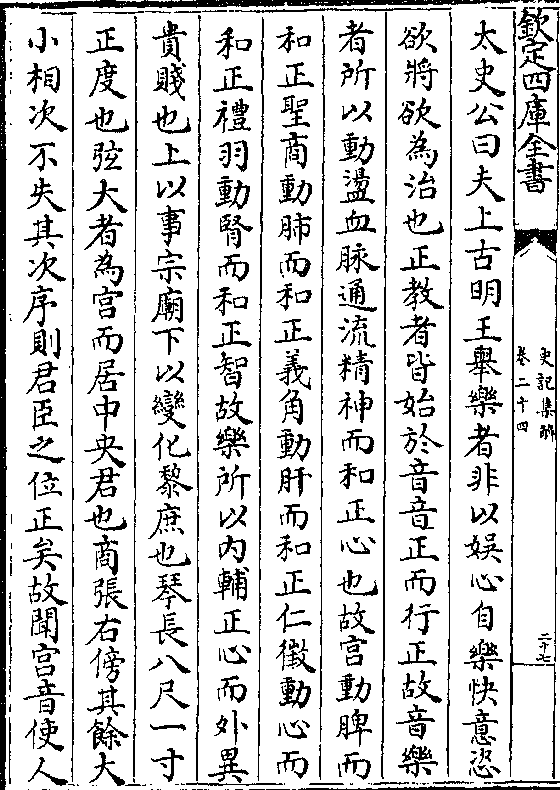 欽定四庫全書
史記集解
卷二十四
二十七
太史公曰夫上古明王舉樂者非以娛心自樂快意恣
欲將欲為治也正教者皆始於音音正而行正故音樂
者所以動盪血脉通流精神而和正心也故宫動脾而
和正聖商動肺而和正義角動肝而和正仁徵動心而
和正禮羽動腎而和正智故樂所以内輔正心而外異
貴賤也上以事宗廟下以變化黎庶也琴長八尺一寸
正度也弦大者為宫而居中央君也商張右傍其餘大
小相次不失其次序則君臣之位正矣故聞宫音使人